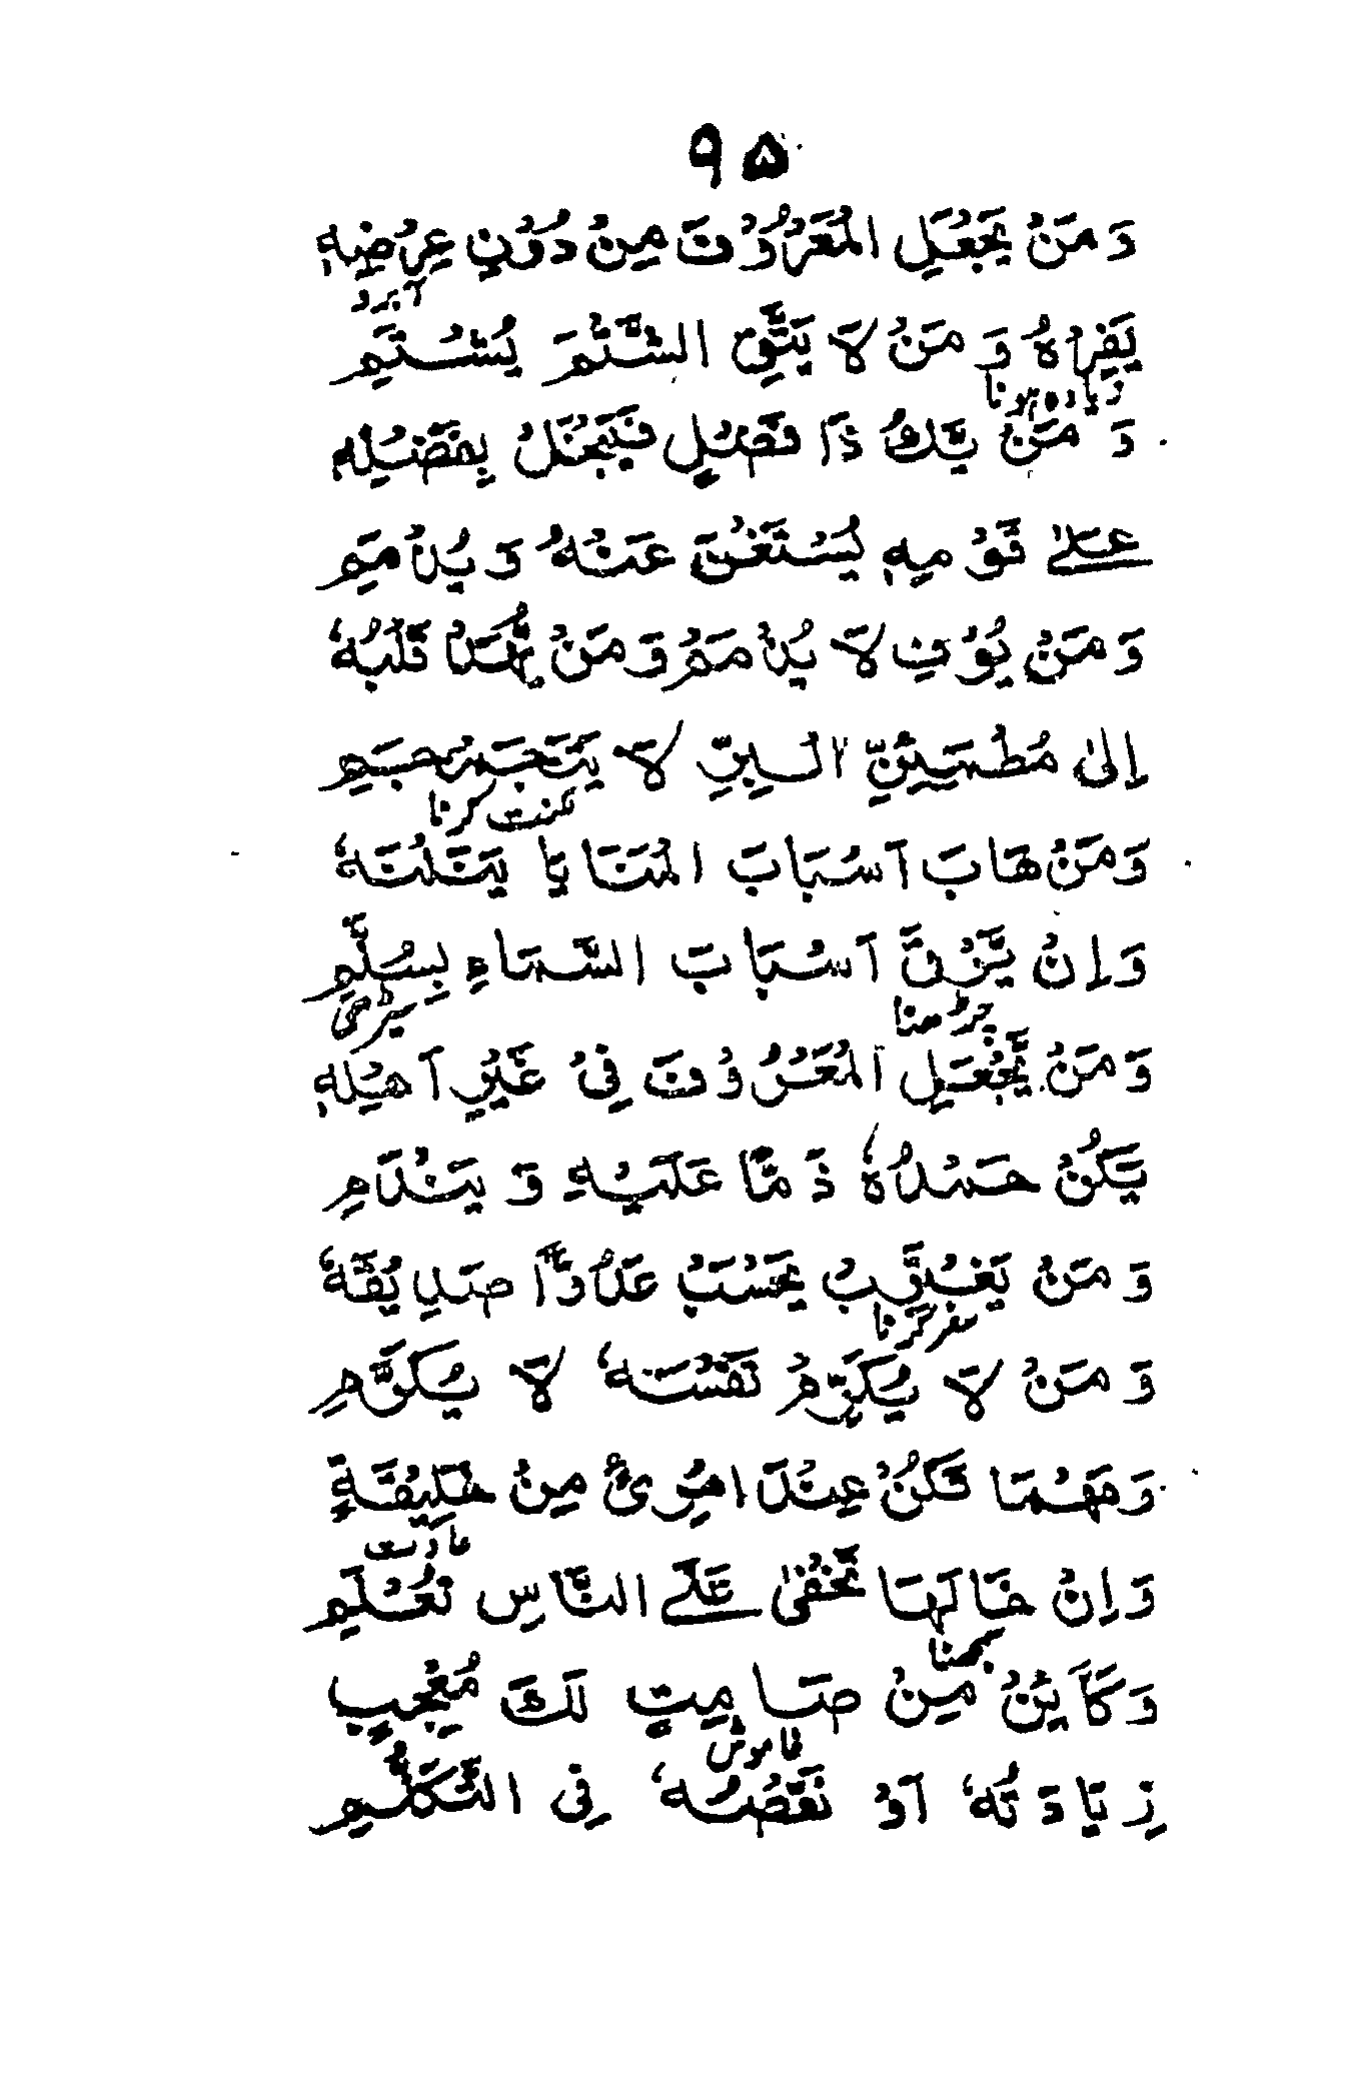 ۹۵
وَ مَنْ يَجْعَلِ الْمَعْرُوْفَ مِنْ دُوْنِ عِرْضِهٖ
آبرو
يَفِرْهُ وَ مَنْ لَا يَتَّقِ الشَّتْمَ يُشْتَمِ
زیادہ ہونا
وَ مَنْ يَّكُ ذَا فَضْلٍ فَيَبْخَلْ بِفَضْلِهٖ
عَلٰے قَوْمِهٖ يُسْتَغْنَ عَنْهُ وَ يُذْمَمِ
وَ مَنْ يُوْفِ لَا يُذْمَمْ وَ مَنْ يُّهْدَ قَلْبُهٗ
اِلٰی مُطْمَئِنِّ الْبِرِّ لَا يَتَجَمْجَمِ
لکنت کرنا
وَ مَنْ هَابَ اَسْبَابَ الْمَنَايَا يَنَلْنَهٗ
وَ اِنْ يَّرْقَ اَسْبَابَ السَّمَاءِ بِسُلَّمِ
چڑھنا سیڑھی
وَ مَنْ يَّجْعَلِ الْمَعْرُوْفَ فِیْ غَيْرِ اَهْلِهٖ
يَكُنْ حَمْدُهٗ ذَمًّا عَلَيْهِ وَ يَنْدَمِ
وَ مَنْ يَغْتَرِبْ يَحْسَبْ عَدُوًّا صَدِيْقَهٗ
سفر کرنا
وَ مَنْ لَا يُكَرِّمْ نَفْسَهٗ لَا يُكَرَّمِ
وَ مَهْمَا تَكُنْ عِنْدَ امْرِیْٔ مِنْ خَلِيْقَةٍ
عادت
وَ اِنْ خَالَهَا تَخْفٰی عَلَے النَّاسِ تُعْلَمِ
سمجھنا
وَ كَأَيِّنْ مِنْ صَامِتٍ لَكَ مُعْجِبٍ
خاموش
زِيَادَتُهٗ اَوْ نَقْصُهٗ فِی التَّكَلُّمِ